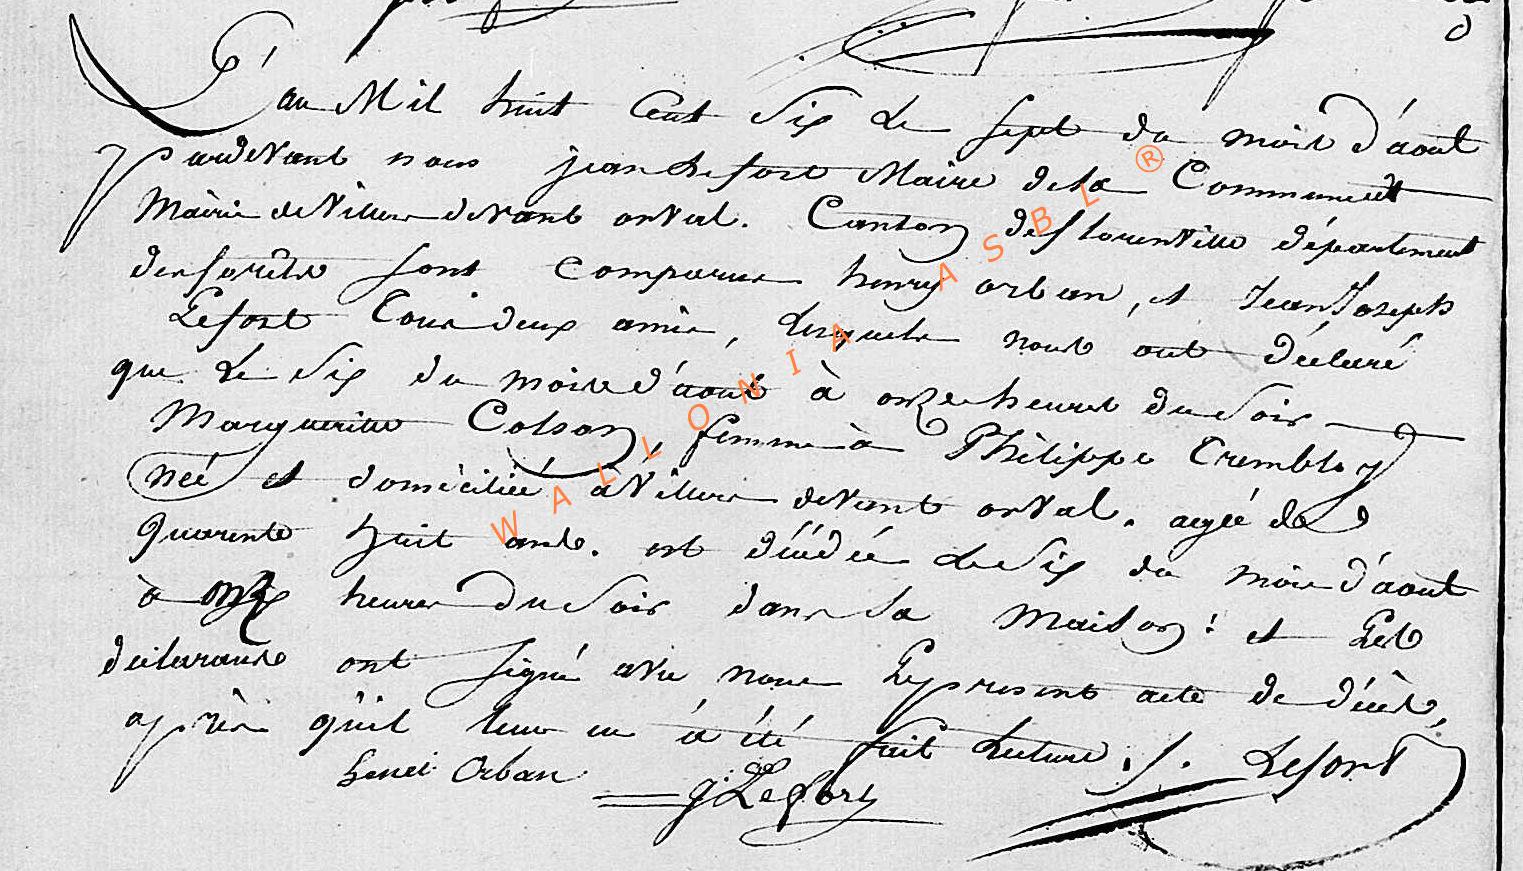 L'an Mil huit Cent Six Le Sept du mois d'aout
pardevant nous jean Lefort Maire de la Commune et
Mairie de Villers devant orval. Canton de florenville département
des forêts sont comparus henry orban, et Jean Joseph
Lefort Tous deux amis, lesquels nous ont déclaré
que Le Six du mois d'aout à onze heures du Soir
Margueritte Colson, femme à Philippe Trembloy
née et domiciliée à Villers devant orval. agée de
quarente huit ans. est décédée le Six du mois d'aout
à onze heures du Soir dans sa maison: et Les
déclarants ont signé avec nous Le present acte de décès,
après qu'il leur en à été fait Lecture. J. Lefort
henri Orban
J Lefort
WALLONIA ASBL ®